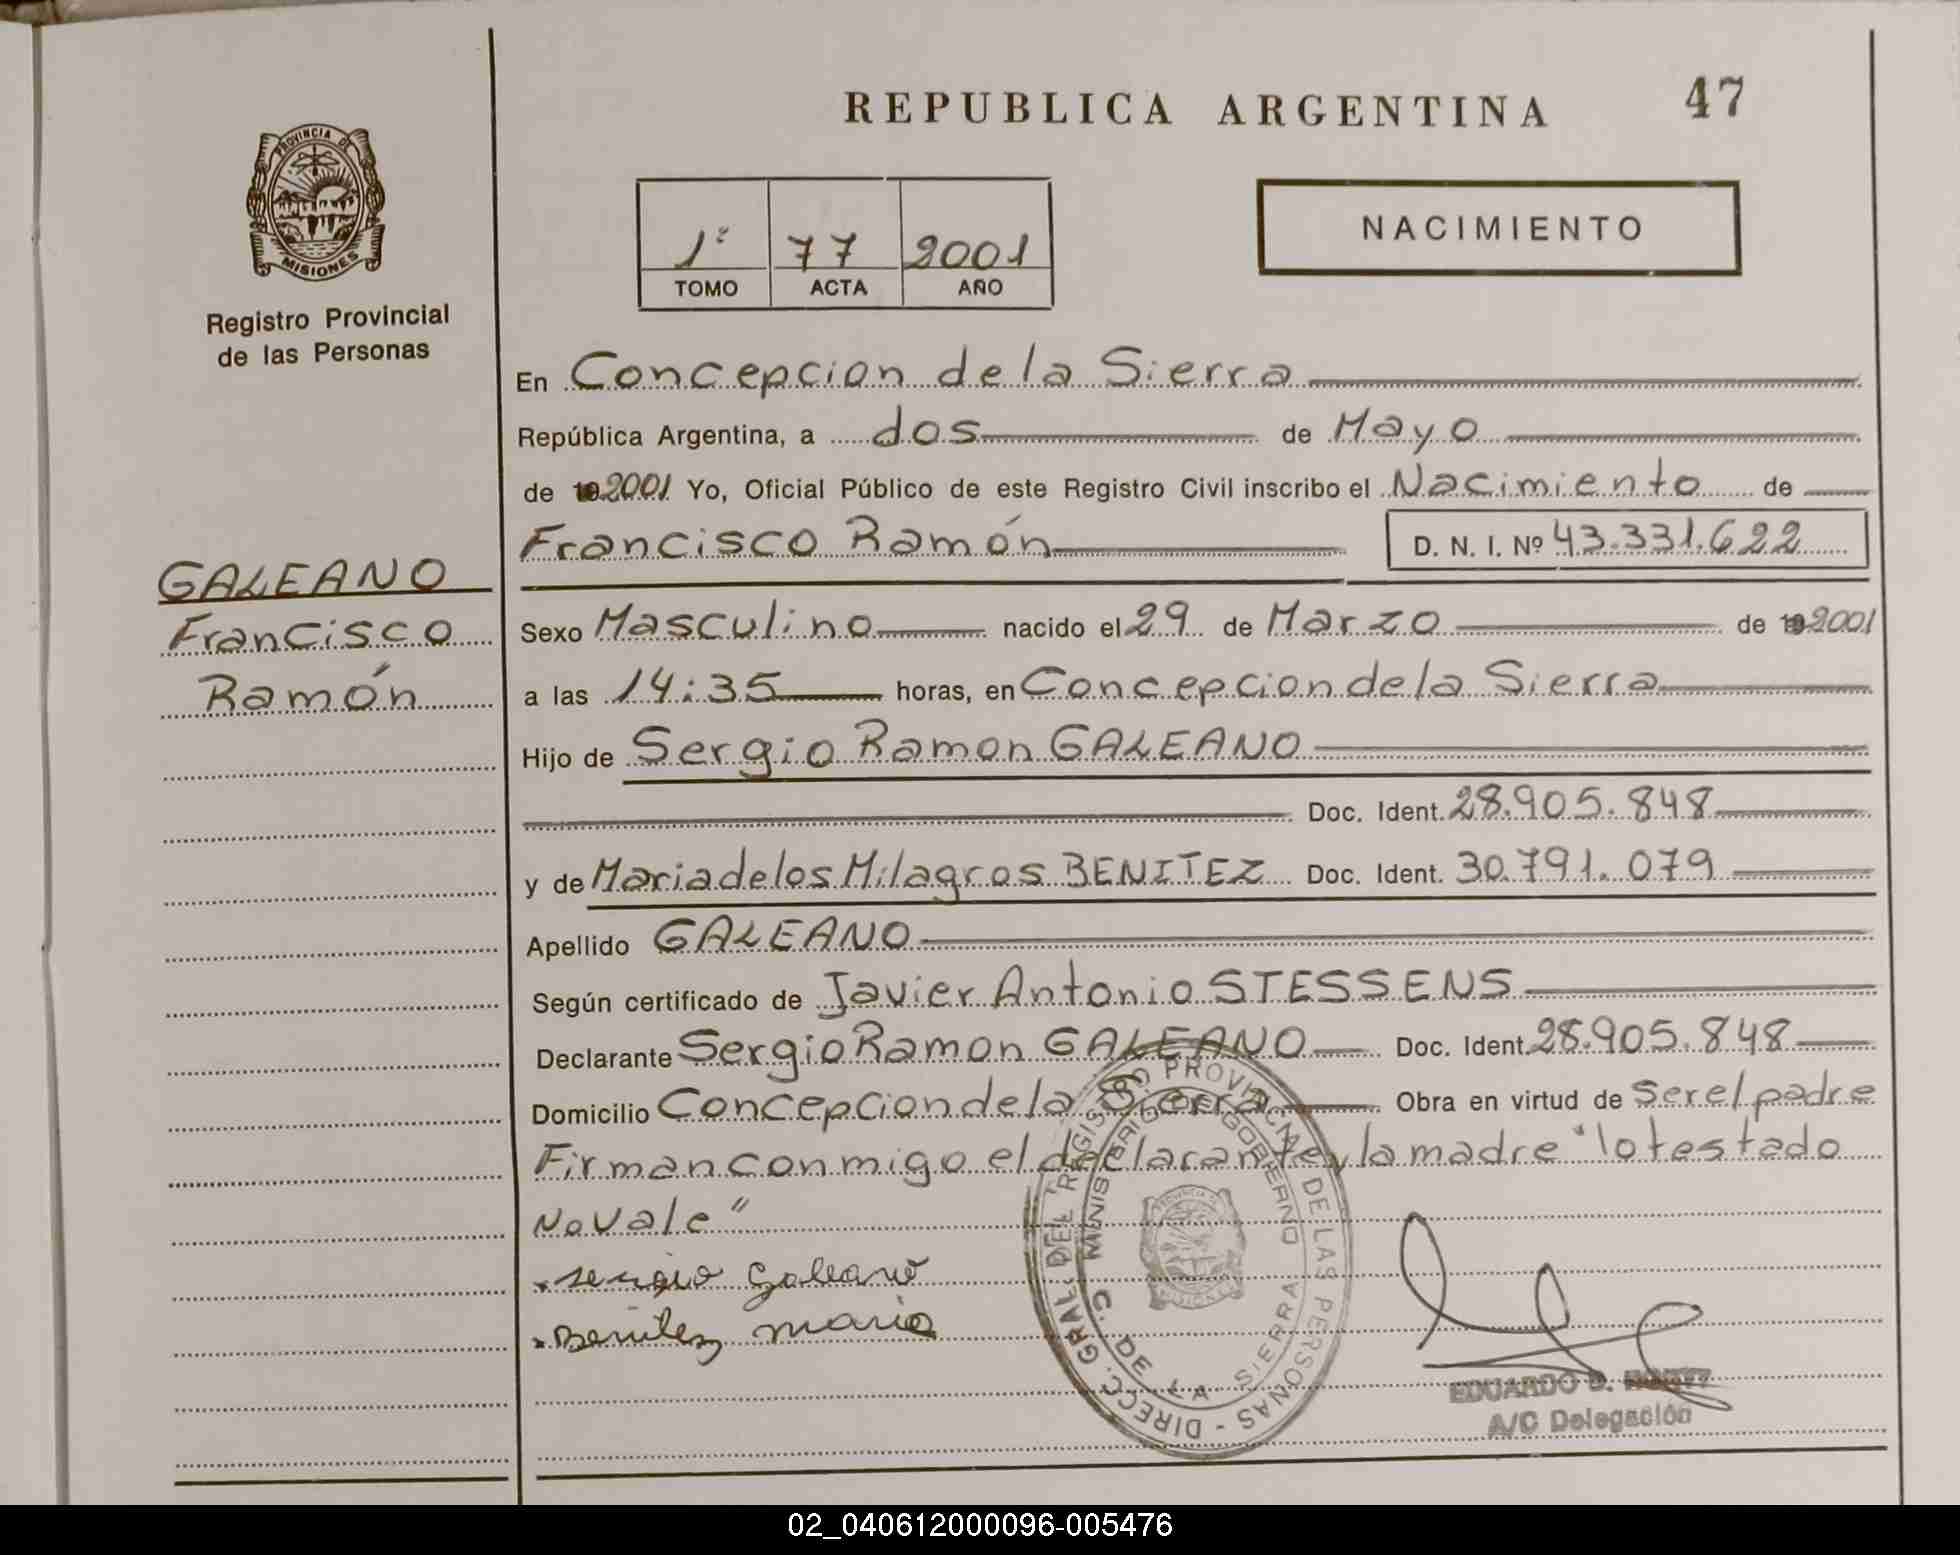 REPUBLICA ARGENTINA
47
PROVINCIA DE MISIONES
Registro Provincial
de las Personas
1º 77 2001
TOMO ACTA AÑO
NACIMIENTO
En Concepcion de la Sierra
República Argentina, a dos de Mayo
de 19 2001 Yo, Oficial Público de este Registro Civil inscribo el Nacimiento de
Francisco Ramón D. N. I. Nº 43.331.622
GALEANO
Francisco
Ramón
Sexo Masculino nacido el 29 de Marzo de 19 2001
a las 14:35 horas, en Concepcion de la Sierra
Hijo de Sergio Ramon GALEANO
Doc. Ident. 28.905.848
y de Maria de los Milagros BENITEZ Doc. Ident. 30.791.079
Apellido GALEANO
Según certificado de Javier Antonio STESSENS
Declarante Sergio Ramon GALEANO Doc. Ident. 28.905.848
Domicilio Concepcion de la Sierra Obra en virtud de ser el padre
Firman conmigo el declarante y la madre "lo testado
No Vale"
Sergio Galeano
Benitez Maria
DIRECC. GRAL. DEL REGISTRO PROVINCIAL DE LAS PERSONAS -
MINISTERIO DE GOBIERNO
C. DE LA SIERRA
EDUARDO D.
A/C Delegación
02_040612000096-005476